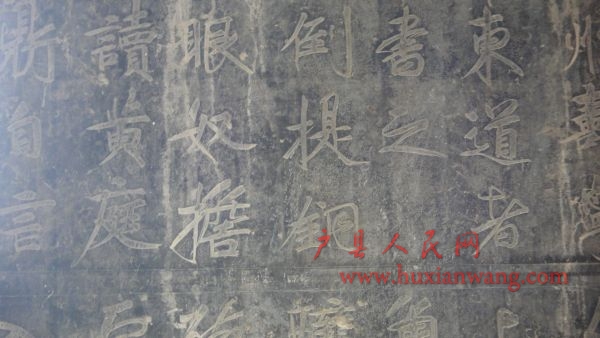 州
東道者
書之
倒提銅
眼奴擔
讀黃庭
鼎自言
户县人民网
www.huxianwang.com